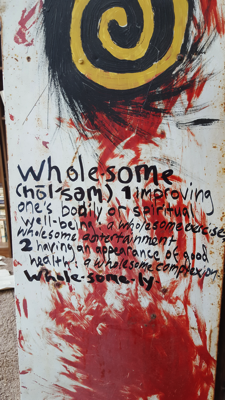 whole·some
(hōl'səm) 1 improving
one's bodily or spiritual
well-being: a wholesome exercise
wholesome entertainment
2 having an appearance of good
health: a wholesome complexion.
Whole·some·ly.